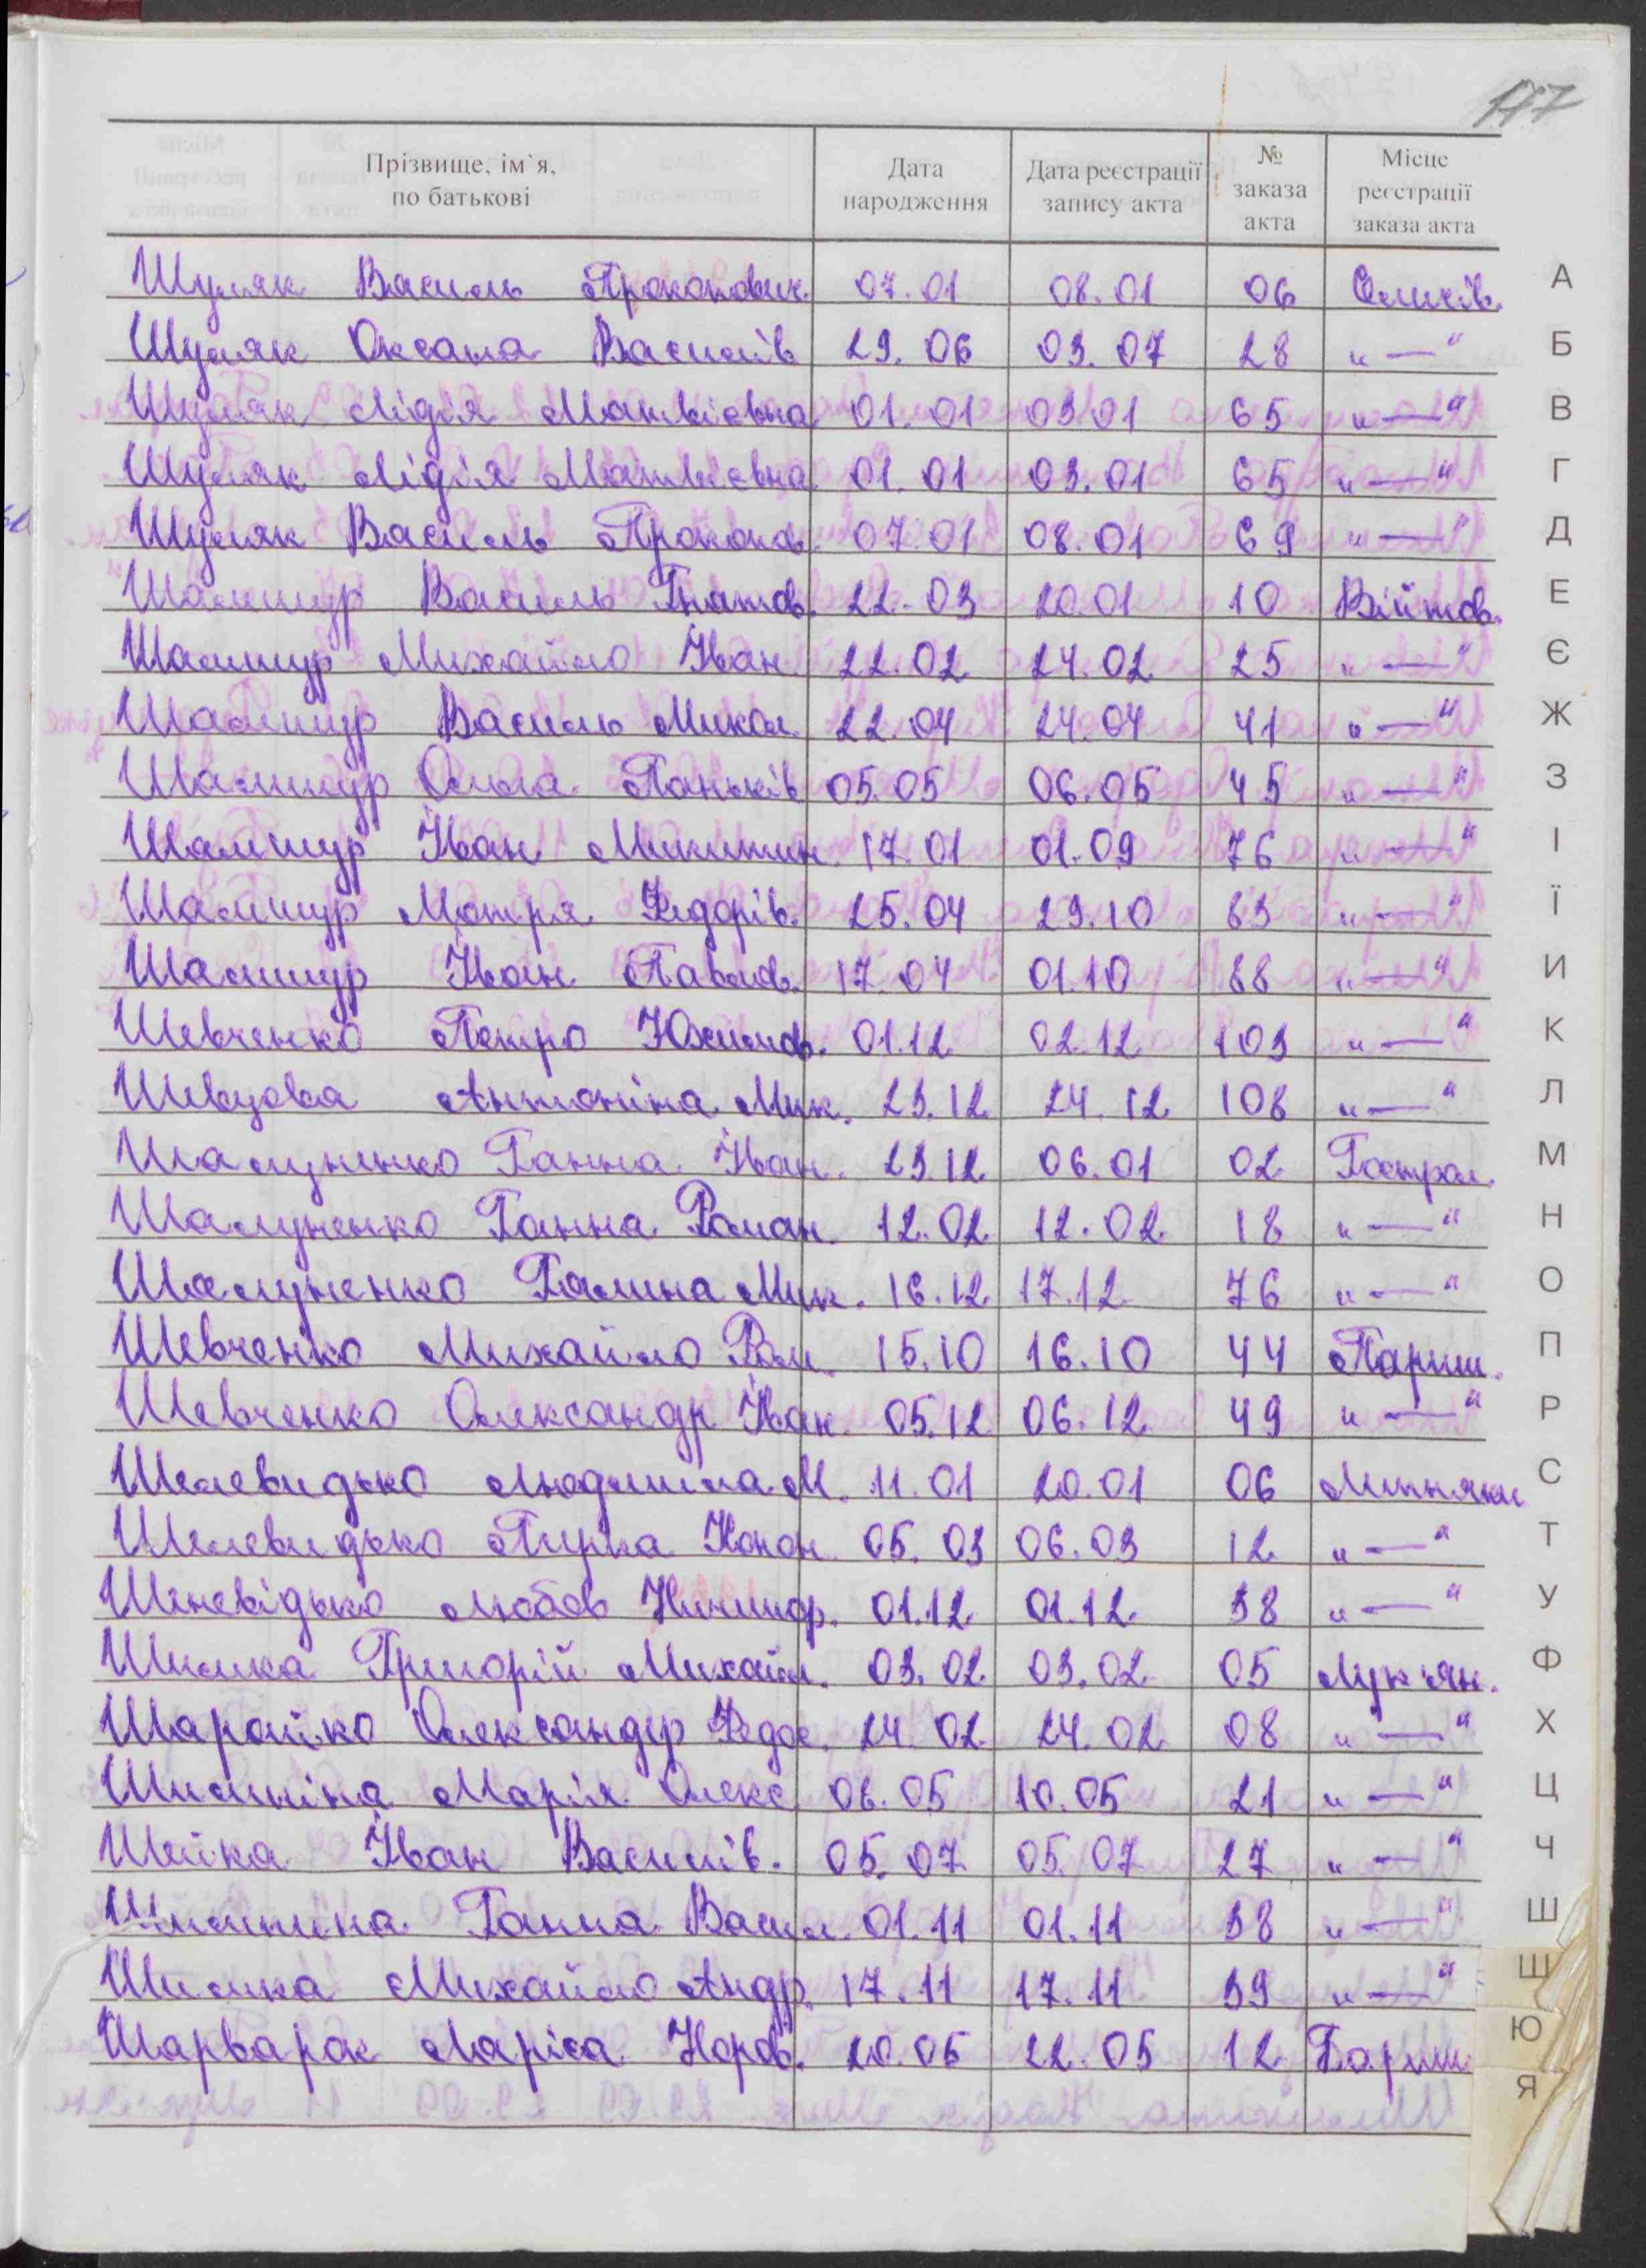 147
Прізвище, ім`я, по батькові | Дата народження | Дата реєстрації запису акта | № заказа акта | Місце реєстрації заказа акта
Шуляк Василь Прокопович 07.01 08.01 06
Шуляк Оксана Василів 29.06 03.07 28 "—"
Шуляк Лідія Матвієвна 01.01 03.01 65 "—"
Шуляк Лідія Матвієвна 01.01 03.01 65 "—"
Шуляк Василь Прокопов. 07.01 08.01 69 "—"
Шамшур Василь Гнатов. 22.03 20.01 10 Війтов.
Шамшур Михайло Іван. 22.02 24.02 25 "—"
Шамшур Василь Микол. 22.04 24.04 41 "—"
Шамшур Ольга Паньків 05.05 06.05 45 "—"
Шамшур Іван Микитич. 17.01 01.09 76 "—"
Шамшур Мотря Федорів. 25.04 29.10 83 "—"
Шамшур Іван Павлов. 17.04 01.10 88 "—"
Шевченко Петро Юхимов. 01.12 02.12 103 "—"
Шевцова Антоніна Мик. 23.12 24.12 108 "—"
Шалуненко Ганна Іван. 23.12 06.01 02 Гострол.
Шалуненко Ганна Роман. 12.02 12.02 18 "—"
Шалуненко Галина Мик. 16.12 17.12 76 "—"
Шевченко Михайло Ром. 15.10 16.10 44 Париш.
Шевченко Олександр Іван. 05.12 06.12 49 "—"
Шелевидько Людмила М. 11.01 20.01 06
Шелевидько Конон. 05.03 06.03 12 "—"
Шеневідько Любов 01.12 01.12 38 "—"
Шилка Григорій Михайл. 03.02 03.02 05 Лук'ян.
Шарайко Олександр Федос. 24.02 24.02 08 "—"
Шишкіна Марія Олекс. 06.05 10.05 21 "—"
Шейка Іван Василів. 05.07 05.07 27 "—"
Ганна Васил. 01.11 01.11 38 "—"
Шилка Михайло Андр. 17.11 17.11 39 "—"
Шарварок Лариса 20.05 22.05 12 Бориш.
А
Б
В
Г
Д
Е
Є
Ж
З
І
Ї
И
К
Л
М
Н
О
П
Р
С
Т
У
Ф
Х
Ц
Ч
Ш
Щ
Ю
Я